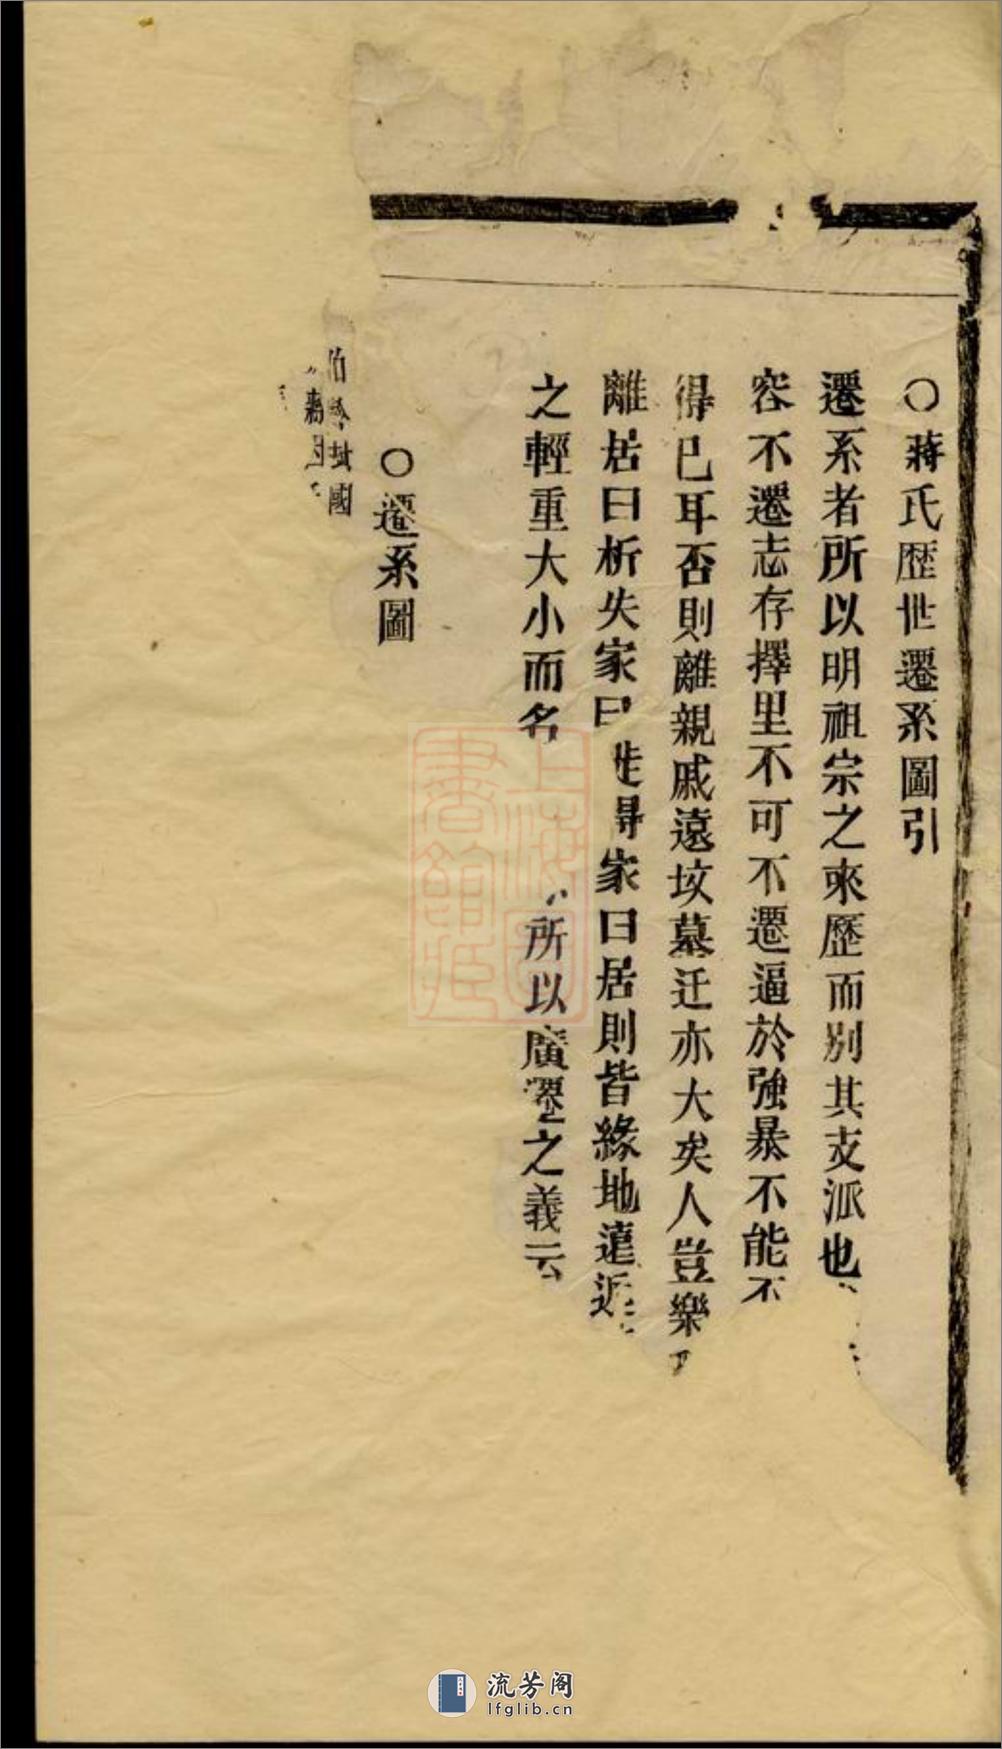 ○蔣氏歷世遷系圖引
遷系者所以明祖宗之來歷而別其支派也
容不遷志存擇里不可不遷逼於強暴不能不
得已耳否則離親戚遠坟墓迁亦大矣人豈樂
離居曰析失家曰徙得家曰居則皆緣地遠近
之輕重大小而名
所以廣遷之義云
○遷系圖
國
上海圖書館藏
流芳阁
lfglib.cn